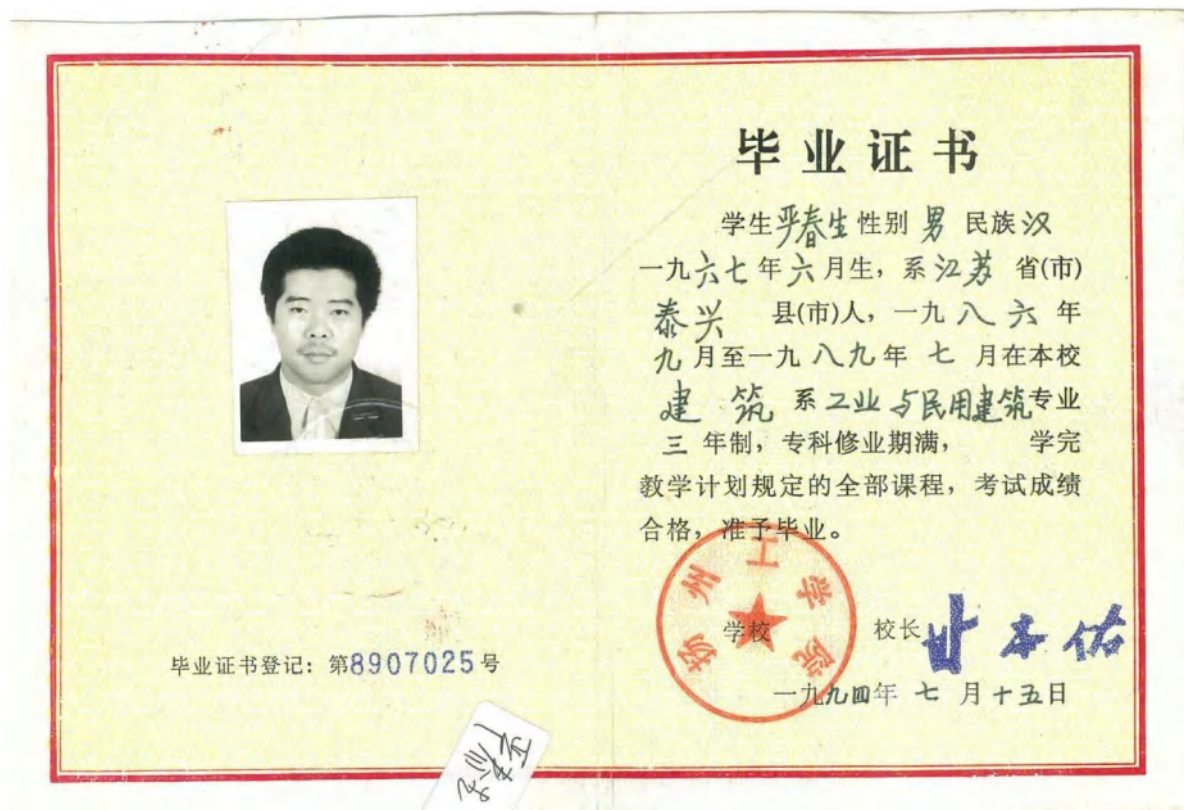 毕业证书
学生严春生性别 男 民族汉
一九六七年六月生，系江苏 省(市)
泰兴 县(市)人，一九八六年
九月至一九八九年 七 月在本校
建筑 系工业与民用建筑专业
三 年制，专科修业期满， 学完
教学计划规定的全部课程，考试成绩
合格，准予毕业。
扬州工学院
学校 校长
一九九四年 七 月十五日
毕业证书登记：第8907025号